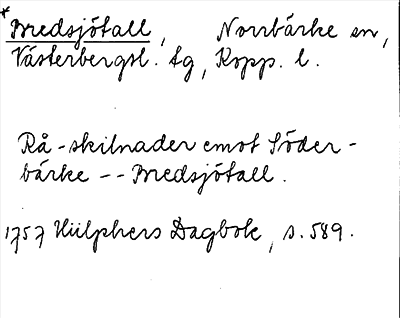 * Bredsjötall, Norrbärke sn,
Västerbergsl. tg, Kopp. l.
Rå-skilnader emot Söder-
bärke -- Bredsjötall.
1757 Hülphers Dagbok, s. 589.